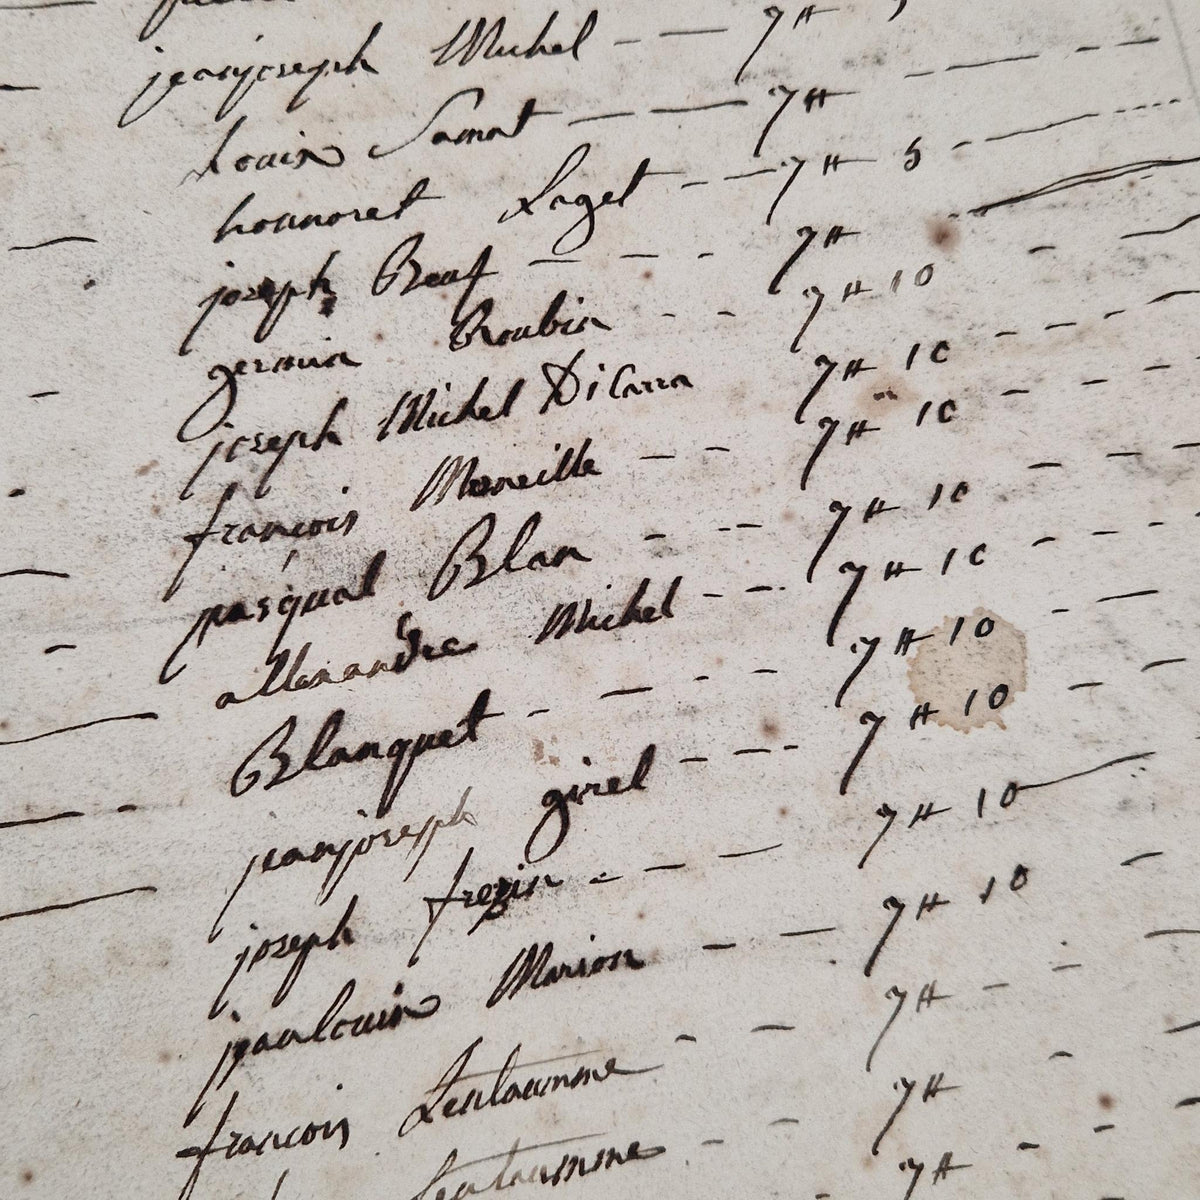 jeanjoseph Michel - - — 7 ₶
Louis Samat — — 7 ₶
honnoret Laget - — 7 ₶ 5 -
joseph Beuf - - - - 7 ₶
germain Roubin - - 7 ₶ 10
joseph Michel DiCarra 7 ₶ 10 - - -
françois Merveille - - 7 ₶ 10 - - -
pasqual Blan - -- 7 ₶ 10 - - -
allexandre Michel - - - 7 ₶ 10 - - -
Blanquet - — - - 7 ₶ 10 - —
jeanjoseph girel - - - 7 ₶ 10 - -
joseph frezin - - - — 7 ₶ 10
jeanlouis Marion - — 7 ₶ 10 -
françois Lentoumme - — 7 ₶ - -
Lentoumme - - 7 ₶ -
7 ₶ - -